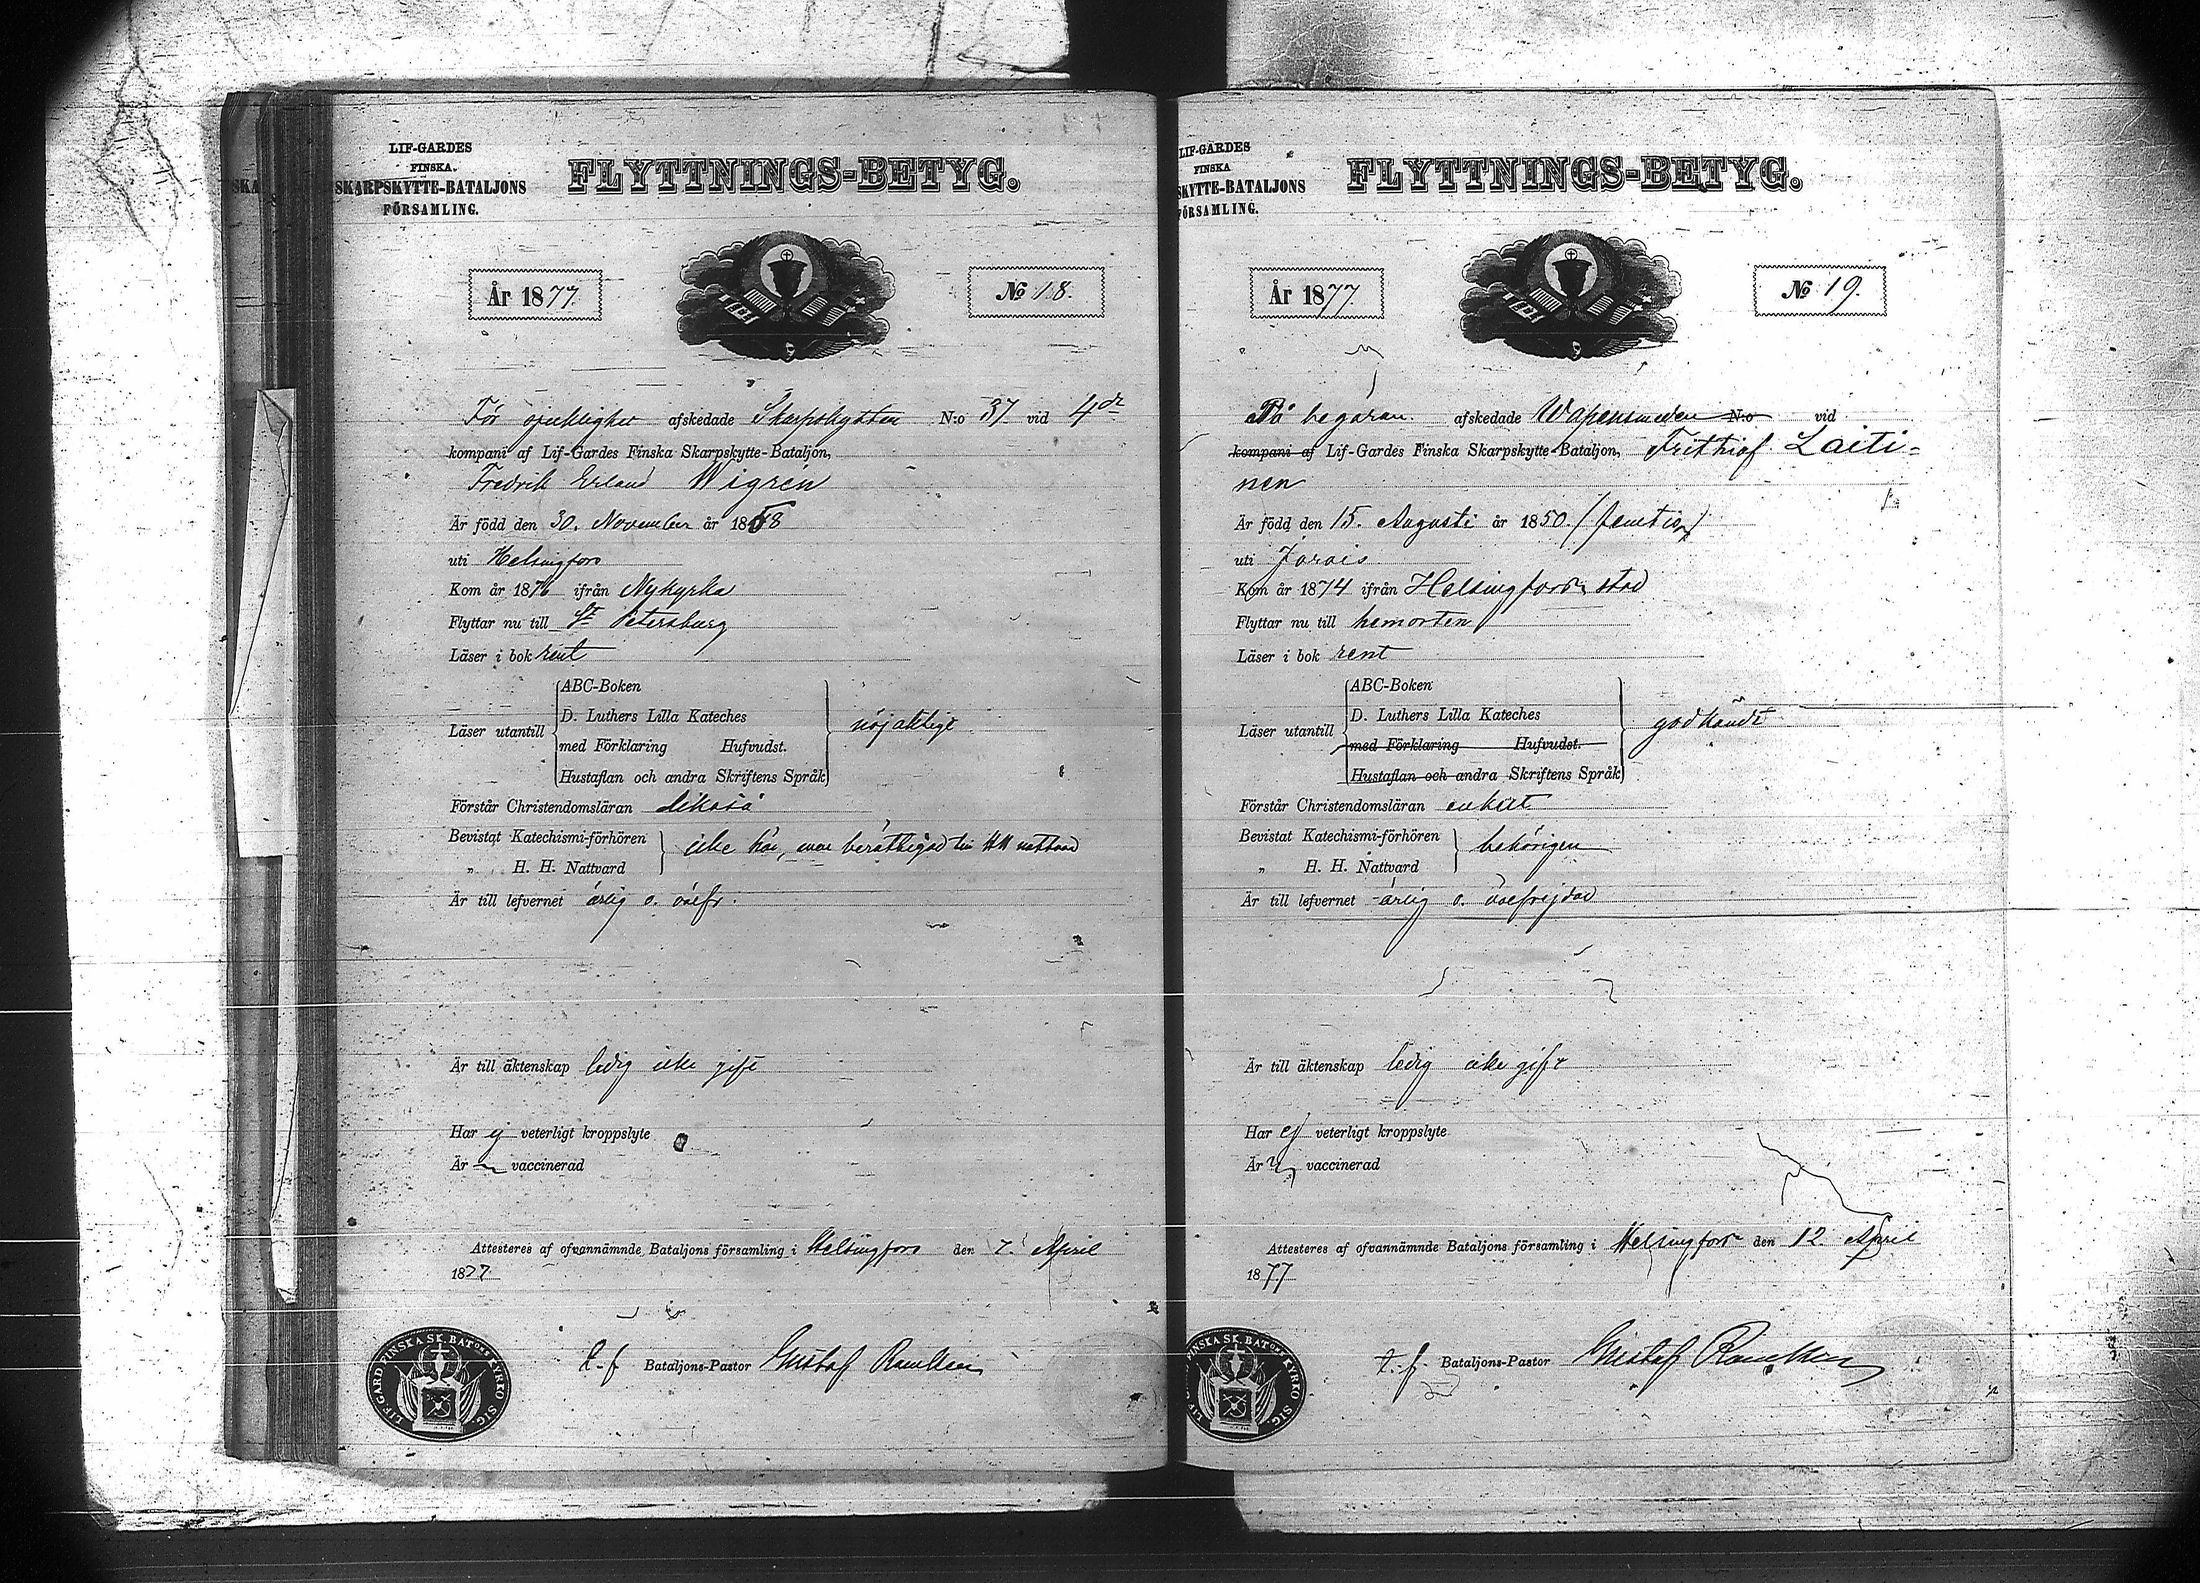 LIF-GARDES
FINSKA
SKARPSKYTTE-BATALJONS
FÖRSAMLING.
FLYTTNINGS-BETYG.
År 1877.
No 18.
För sjukligher afskedade Skarpskytten N:o 37 vid 4de
kompani af Lif-Gardes Finska Skarpskytte-Bataljon,
Fredrik Erland Wigrén
Är född den 30. November år 1858
uti Helsingfors
Kom år 1876 ifrån Nykyrka
Flyttar nu till St Petersburg
Läser i bok rent
ABC-Boken
D. Luthers Lilla Kateches
Läser utantill med Förklaring Hufvudst. nöjaktigt
Hustaflan och andra Skriftens Språk
Förstår Christendomsläran likaså
Bevistat Katechismi-förhören
„ H. H. Nattvard icke här, men berättigad till HH nattvard
Är till lefvernet ärlig o. oåefr.
Är till äktenskap ledig icke gift
Har ej veterligt kroppslyte
Är vaccinerad
Attesteres af ofvannämnde Bataljons församling i Helsingfors den 7. April
1877
t.f. Bataljons-Pastor Gustaf
LIF-GARD FINSKA SK. BAT:ONS KYRKO SIG.
LIF-GARDES
FINSKA
SKYTTE-BATALJONS
FÖRSAMLING.
FLYTTNINGS-BETYG.
År 1877
No 19.
På begäran afskedade Wapensmeden N:o vid
kompani af Lif-Gardes Finska Skarpskytte-Bataljon, Frithiof Laiti-
nen
Är född den 15. Augusti år 1850. (femtio)
uti Jorois
Kom år 1874 ifrån Helsingfors stad
Flyttar nu till hemorten
Läser i bok rent
ABC-Boken
D. Luthers Lilla Kateches
Läser utantill med Förklaring Hufvudst. godkändt
Hustaflan och andra Skriftens Språk
Förstår Christendomsläran enkelt
Bevistat Katechismi-förhören
„ H. H. Nattvard behörigen
Är till lefvernet ärlig o. oåefrejdad
Är till äktenskap ledig icke gift
Har ej veterligt kroppslyte
Är vaccinerad
Attesteres af ofvannämnde Bataljons församling i Helsingfors den 12. April
1877
t.f. Bataljons-Pastor Gustaf
FINSKA SK. BAT:ONS KYRKO SIG.